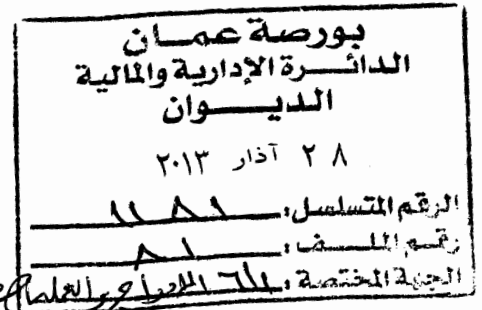 بورصة عمان
الدائرة الإدارية والمالية
الديوان
٢٨ آذار ٢٠١٣
الرقم المتسلسل: ١١٨١
رقم الملف: ٨١
الجهة المختصة: الإدراج